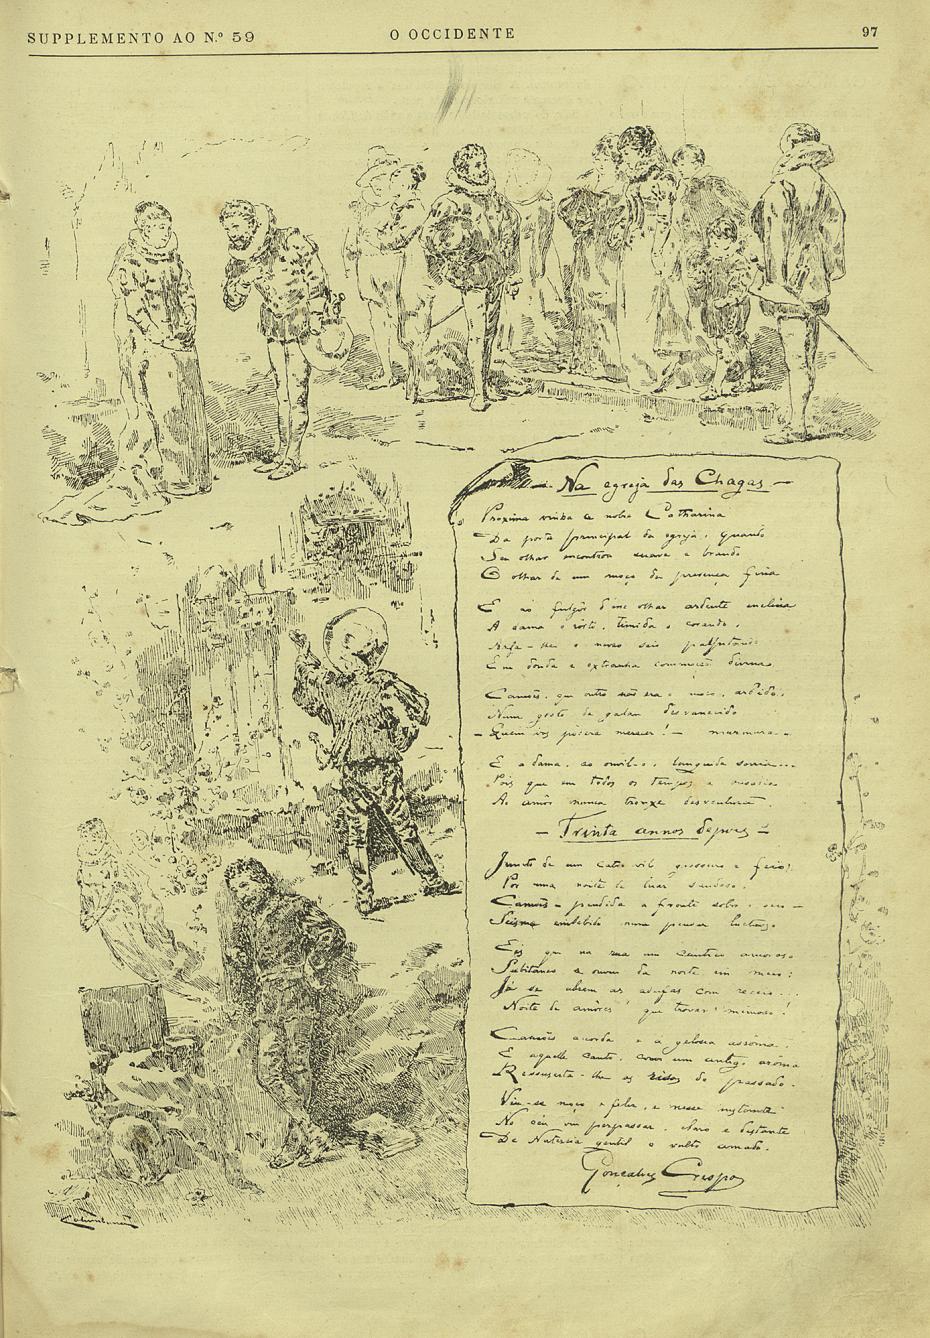 SUPPLEMENTO AO N.º 59
O OCCIDENTE
97
Na egreja das Chagas
Proxima vinha a nobre Catharina
Da porta principal da egreja, quando
Seu olhar encontrou suave e brando
O olhar de um moço de presença fina
E ao fulgor d'esse olhar ardente inclina
A dama o rosto, timida e corando,
o novo seio palpitando
Em doida e extranha commoção divina.
Camões, que outro não era o moço ardido,
Num gesto de galan desvanecido
— Quem vos podera merecer! — murmura..
E a dama, ao ouvil-o, languida sorria...
Pois que em todos os tempos a ousadia
Ao amôr nunca trouxe desventura.
— Trinta annos depois —
Junto de um catre vil, grosseiro e feio,
Por uma noite de luar saudoso,
Camões, pendida a fronte sobre o seio
Scisma embebido num pezar luctuoso
Eis que na rua um cantico amoroso
Subitaneo se ouviu da noite em meio:
Já se abrem as adufas com receio...
Noite de amôres que trovar mimoso!
Camões acorda e á gelosia assoma;
E aquelle canto, como um antigo aroma
Ressuscita-lhe os risos do passado.
Viu-se moço e feliz, e nesse instante
No céu viu perpassar, claro e distante
De Natercia gentil o vulto amado.
Gonçalves Crespo
Columbano